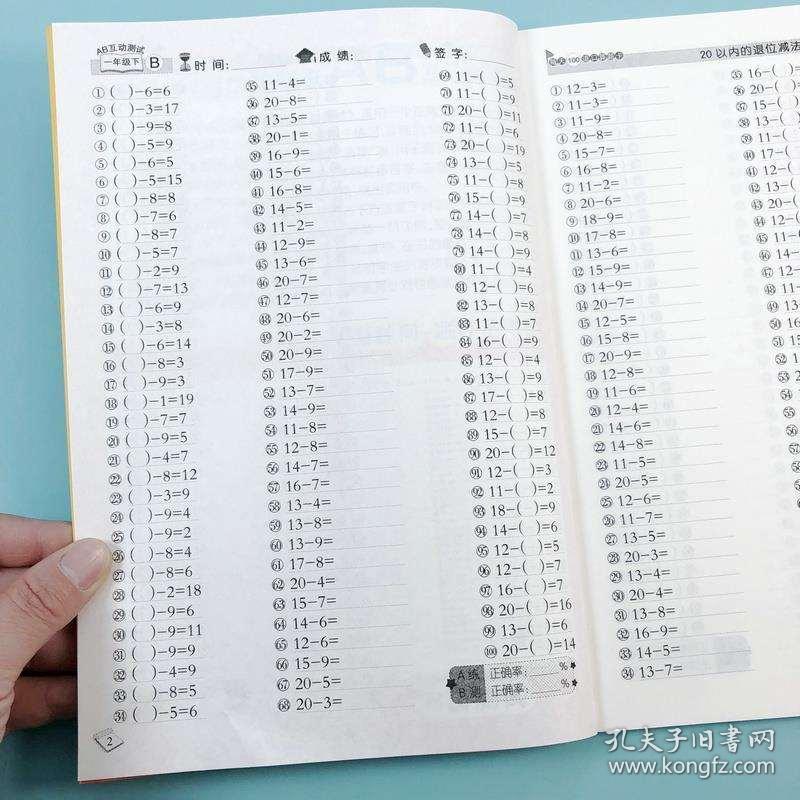 AB互动测试
一年级下 B 时间: 成绩: 签字:
① ( )-6=6
② ( )-3=17
③ ( )-9=8
④ ( )-5=9
⑤ ( )-6=5
⑥ ( )-5=15
⑦ ( )-8=8
⑧ ( )-7=6
⑨ ( )-8=7
⑩ ( )-5=7
⑪ ( )-2=9
⑫ ( )-7=13
⑬ ( )-6=9
⑭ ( )-3=8
⑮ ( )-6=14
⑯ ( )-8=3
⑰ ( )-9=3
⑱ ( )-1=19
⑲ ( )-7=7
⑳ ( )-9=5
㉑ ( )-4=7
㉒ ( )-8=12
㉓ ( )-3=9
㉔ ( )-9=4
㉕ ( )-9=2
㉖ ( )-8=4
㉗ ( )-8=6
㉘ ( )-2=18
㉙ ( )-9=6
㉚ ( )-9=11
㉛ ( )-9=9
㉜ ( )-4=9
㉝ ( )-8=5
㉞ ( )-5=6
㉟ 11-4=
㊱ 20-8=
㊲ 13-5=
㊳ 20-1=
㊴ 16-9=
㊵ 15-6=
㊶ 16-8=
㊷ 14-5=
㊸ 11-2=
㊹ 12-9=
㊺ 13-6=
㊻ 20-7=
㊼ 12-7=
㊽ 20-6=
㊾ 20-2=
㊿ 20-9=
51 17-9=
52 13-7=
53 14-9=
54 11-8=
55 12-8=
56 14-7=
57 16-7=
58 13-4=
59 13-8=
60 13-9=
61 17-8=
62 20-4=
63 15-7=
64 14-6=
65 12-6=
66 15-9=
67 20-5=
68 20-3=
69 11-( )=5
70 11-( )=9
71 20-( )=11
72 11-( )=6
73 20-( )=19
74 13-( )=5
75 11-( )=8
76 15-( )=9
77 14-( )=7
78 14-( )=8
79 14-( )=9
80 11-( )=4
81 12-( )=6
82 13-( )=8
83 11-( )=7
84 16-( )=9
85 12-( )=4
86 13-( )=9
87 17-( )=8
88 12-( )=8
89 15-( )=7
90 20-( )=12
91 12-( )=3
92 11-( )=2
93 18-( )=9
94 14-( )=6
95 12-( )=5
96 12-( )=7
97 16-( )=7
98 20-( )=16
99 13-( )=6
100 20-( )=14
A练 正确率: %
B测 正确率: %
2
20以内的退位减法
① 12-3=
② 11-3=
③ 11-9=
④ 20-8=
⑤ 15-7=
⑥ 16-8=
⑦ 11-2=
⑧ 20-6=
⑨ 18-9=
⑩ 17-8=
⑪ 13-6=
⑫ 15-9=
⑬ 14-9=
⑭ 20-7=
⑮ 12-5=
⑯ 15-8=
⑰ 20-9=
⑱ 12-8=
⑲ 11-6=
⑳ 12-4=
㉑ 14-6=
㉒ 14-8=
㉓ 11-5=
㉔ 20-5=
㉕ 12-6=
㉖ 11-7=
㉗ 13-5=
㉘ 20-3=
㉙ 13-4=
㉚ 20-4=
㉛ 13-8=
㉜ 16-9=
㉝ 14-5=
㉞ 13-7=
孔夫子旧书网
www.kongfz.com